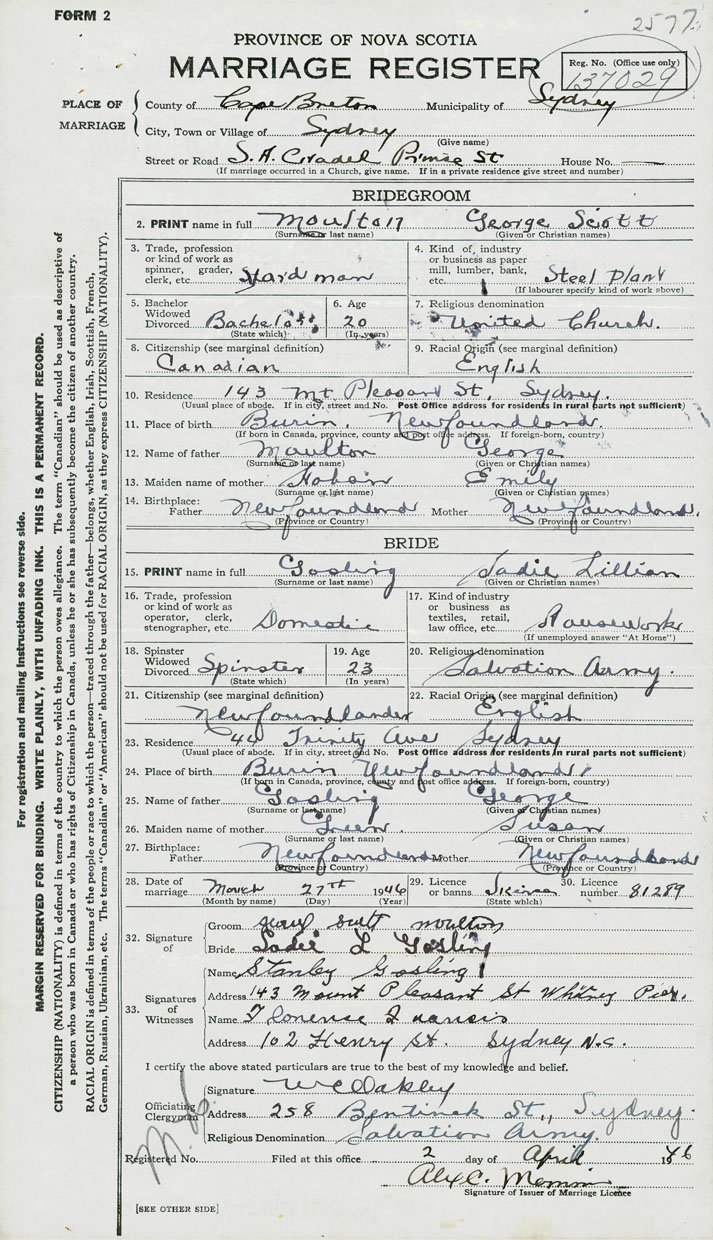 FORM 2
2577
PROVINCE OF NOVA SCOTIA
MARRIAGE REGISTER
Reg. No. (Office use only)
137029
PLACE OF MARRIAGE
County of Cape Breton Municipality of Sydney
City, Town or Village of Sydney
(Give name)
Street or Road S. A. Citadel Prince St House No.
(If marriage occurred in a Church, give name. If in a private residence give street and number)
BRIDEGROOM
2. PRINT name in full Moulton George Scott
(Surname or last name) (Given or Christian names)
3. Trade, profession or kind of work as spinner, grader, clerk, etc. Yard man
4. Kind of industry or business as paper mill, lumber, bank, etc. Steel Plant
(If labourer specify kind of work above)
5. Bachelor Widowed Divorced Bachelor
(State which)
6. Age 20
(In years)
7. Religious denomination United Church.
8. Citizenship (see marginal definition) Canadian
9. Racial Origin (see marginal definition) English
10. Residence 143 Mt. Pleasant St, Sydney.
(Usual place of abode. If in city, street and No. Post Office address for residents in rural parts not sufficient)
11. Place of birth Burin, Newfoundland.
(If born in Canada, province, county and post office address. If foreign-born, country)
12. Name of father Moulton George
(Surname or last name) (Given or Christian names)
13. Maiden name of mother Emily
(Surname or last name) (Given or Christian names)
14. Birthplace: Father Newfoundland Mother Newfoundland.
(Province or Country) (Province or Country)
BRIDE
15. PRINT name in full Gosling Sadie Lillian
(Surname or last name) (Given or Christian names)
16. Trade, profession or kind of work as operator, clerk, stenographer, etc. Domestic
17. Kind of industry or business as textiles, retail, law office, etc. Housework
(If unemployed answer "At Home")
18. Spinster Widowed Divorced Spinster
(State which)
19. Age 23
(In years)
20. Religious denomination Salvation Army.
21. Citizenship (see marginal definition) Newfoundlander
22. Racial Origin (see marginal definition) English
23. Residence 44 Trinity Ave Sydney
(Usual place of abode. If in city, street and No. Post Office address for residents in rural parts not sufficient)
24. Place of birth Burin Newfoundland
(If born in Canada, province, county and post office address. If foreign-born, country)
25. Name of father Gosling George
(Surname or last name) (Given or Christian names)
26. Maiden name of mother Green Susan
(Surname or last name) (Given or Christian names)
27. Birthplace: Father Newfoundland Mother Newfoundland
(Province or Country) (Province or Country)
28. Date of marriage March 27th 1946
(Month by name) (Day) (Year)
29. Licence or banns
(State which)
30. Licence number 81289
32. Signature of
Groom Scott Moulton
Bride Sadie L Gosling
33. Signatures of Witnesses
Name Stanley Gosling
Address 143 Mount Pleasant St Whitney Pier.
Name Florence Francis
Address 102 Henry St. Sydney N.S.
I certify the above stated particulars are true to the best of my knowledge and belief.
Officiating Clergyman
Signature W C Oakley
Address 258 Bentinck St., Sydney.
Religious Denomination Salvation Army.
Registered No. Filed at this office 2 day of April 1946
Alex C.
Signature of Issuer of Marriage Licence
[SEE OTHER SIDE]
For registration and mailing instructions see reverse side.
MARGIN RESERVED FOR BINDING. WRITE PLAINLY, WITH UNFADING INK. THIS IS A PERMANENT RECORD.
CITIZENSHIP (NATIONALITY) is defined in terms of the country to which the person owes allegiance. The term "Canadian" should be used as descriptive of
a person who was born in Canada or who has rights of Citizenship in Canada, unless he or she has subsequently become the citizen of another country.
RACIAL ORIGIN is defined in terms of the people or race to which the person—traced through the father—belongs, whether English, Irish, Scottish, French,
German, Russian, Ukrainian, etc. The terms "Canadian" or "American" should not be used for RACIAL ORIGIN, as they express CITIZENSHIP (NATIONALITY).